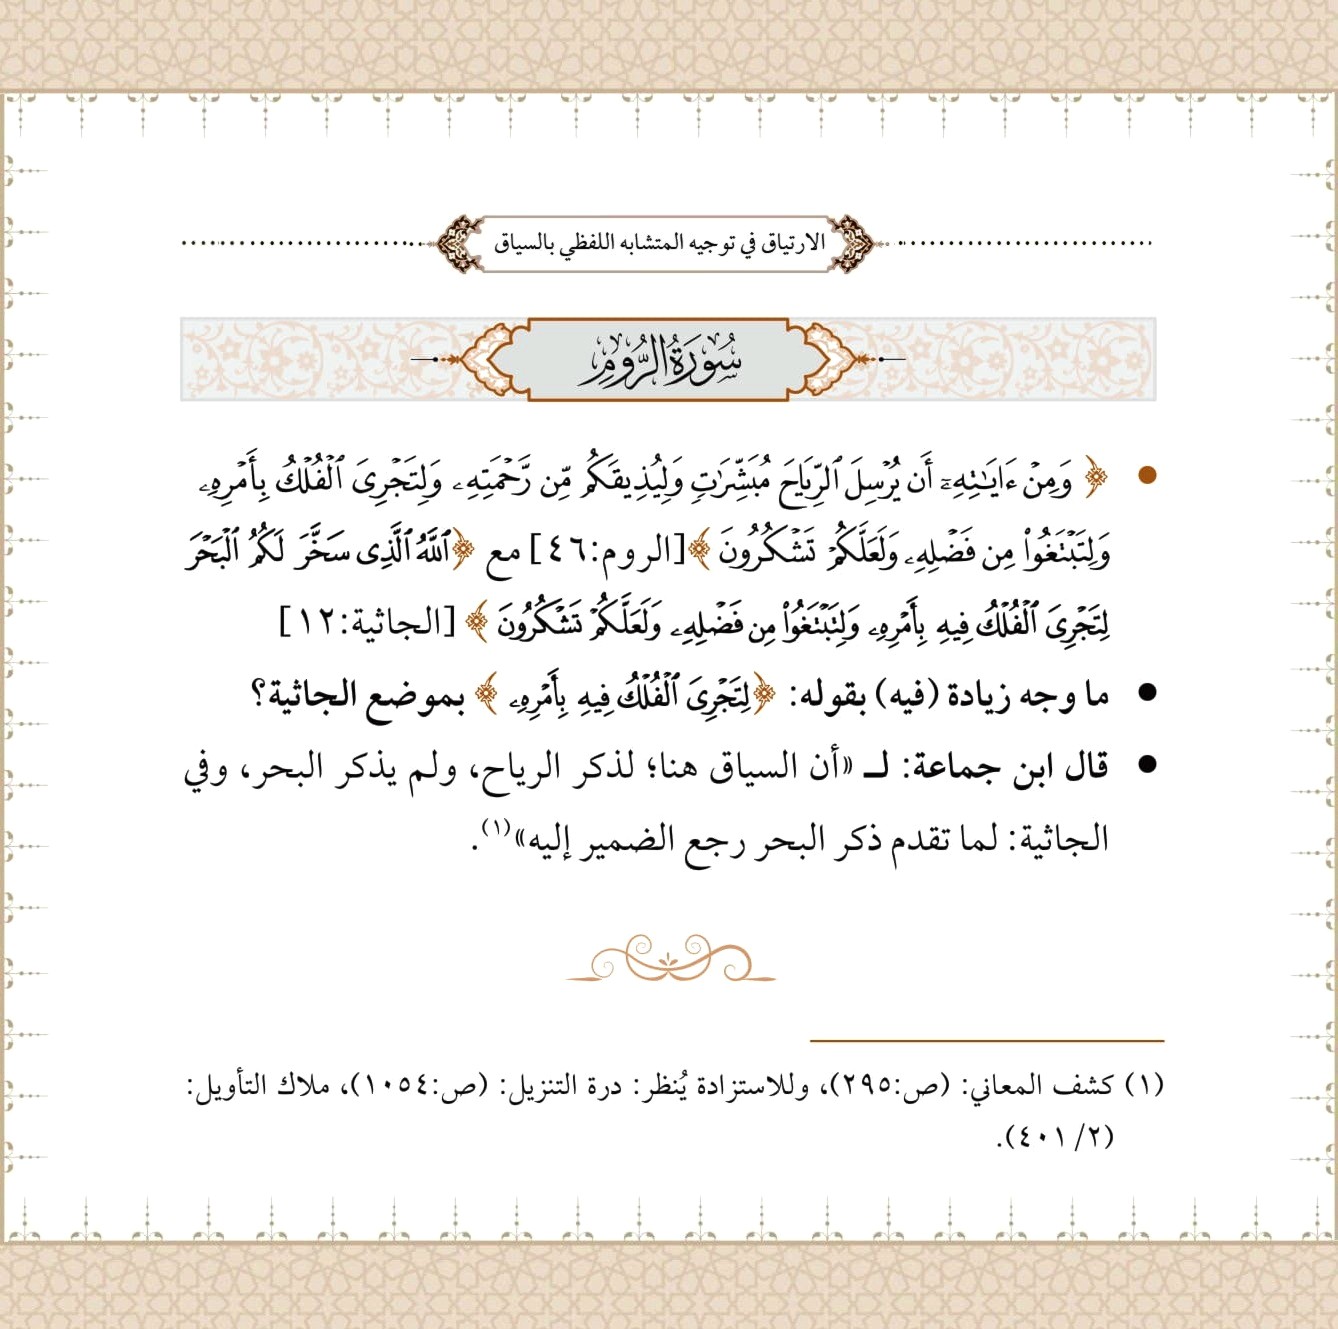 الارتياق في توجيه المتشابه اللفظي بالسياق
سُورَةُ الرُّومِ
• ﴿ وَمِنْ ءَايَٰتِهِۦٓ أَن يُرْسِلَ ٱلرِّيَاحَ مُبَشِّرَٰتٍ وَلِيُذِيقَكُم مِّن رَّحْمَتِهِۦ وَلِتَجْرِىَ ٱلْفُلْكُ بِأَمْرِهِۦ
وَلِتَبْتَغُوا۟ مِن فَضْلِهِۦ وَلَعَلَّكُمْ تَشْكُرُونَ ﴾[الروم:٤٦] مع ﴿ٱللَّهُ ٱلَّذِى سَخَّرَ لَكُمُ ٱلْبَحْرَ
لِتَجْرِىَ ٱلْفُلْكُ فِيهِ بِأَمْرِهِۦ وَلِتَبْتَغُوا۟ مِن فَضْلِهِۦ وَلَعَلَّكُمْ تَشْكُرُونَ ﴾ [الجاثية:١٢]
• ما وجه زيادة (فيه) بقوله: ﴿لِتَجْرِىَ ٱلْفُلْكُ فِيهِ بِأَمْرِهِۦ ﴾ بموضع الجاثية؟
• قال ابن جماعة: لـ «أن السياق هنا؛ لذكر الرياح، ولم يذكر البحر، وفي
الجاثية: لما تقدم ذكر البحر رجع الضمير إليه»(١).
(١) كشف المعاني: (ص:٢٩٥)، وللاستزادة يُنظر: درة التنزيل: (ص:١٠٥٤)، ملاك التأويل:
(٢/ ٤٠١).